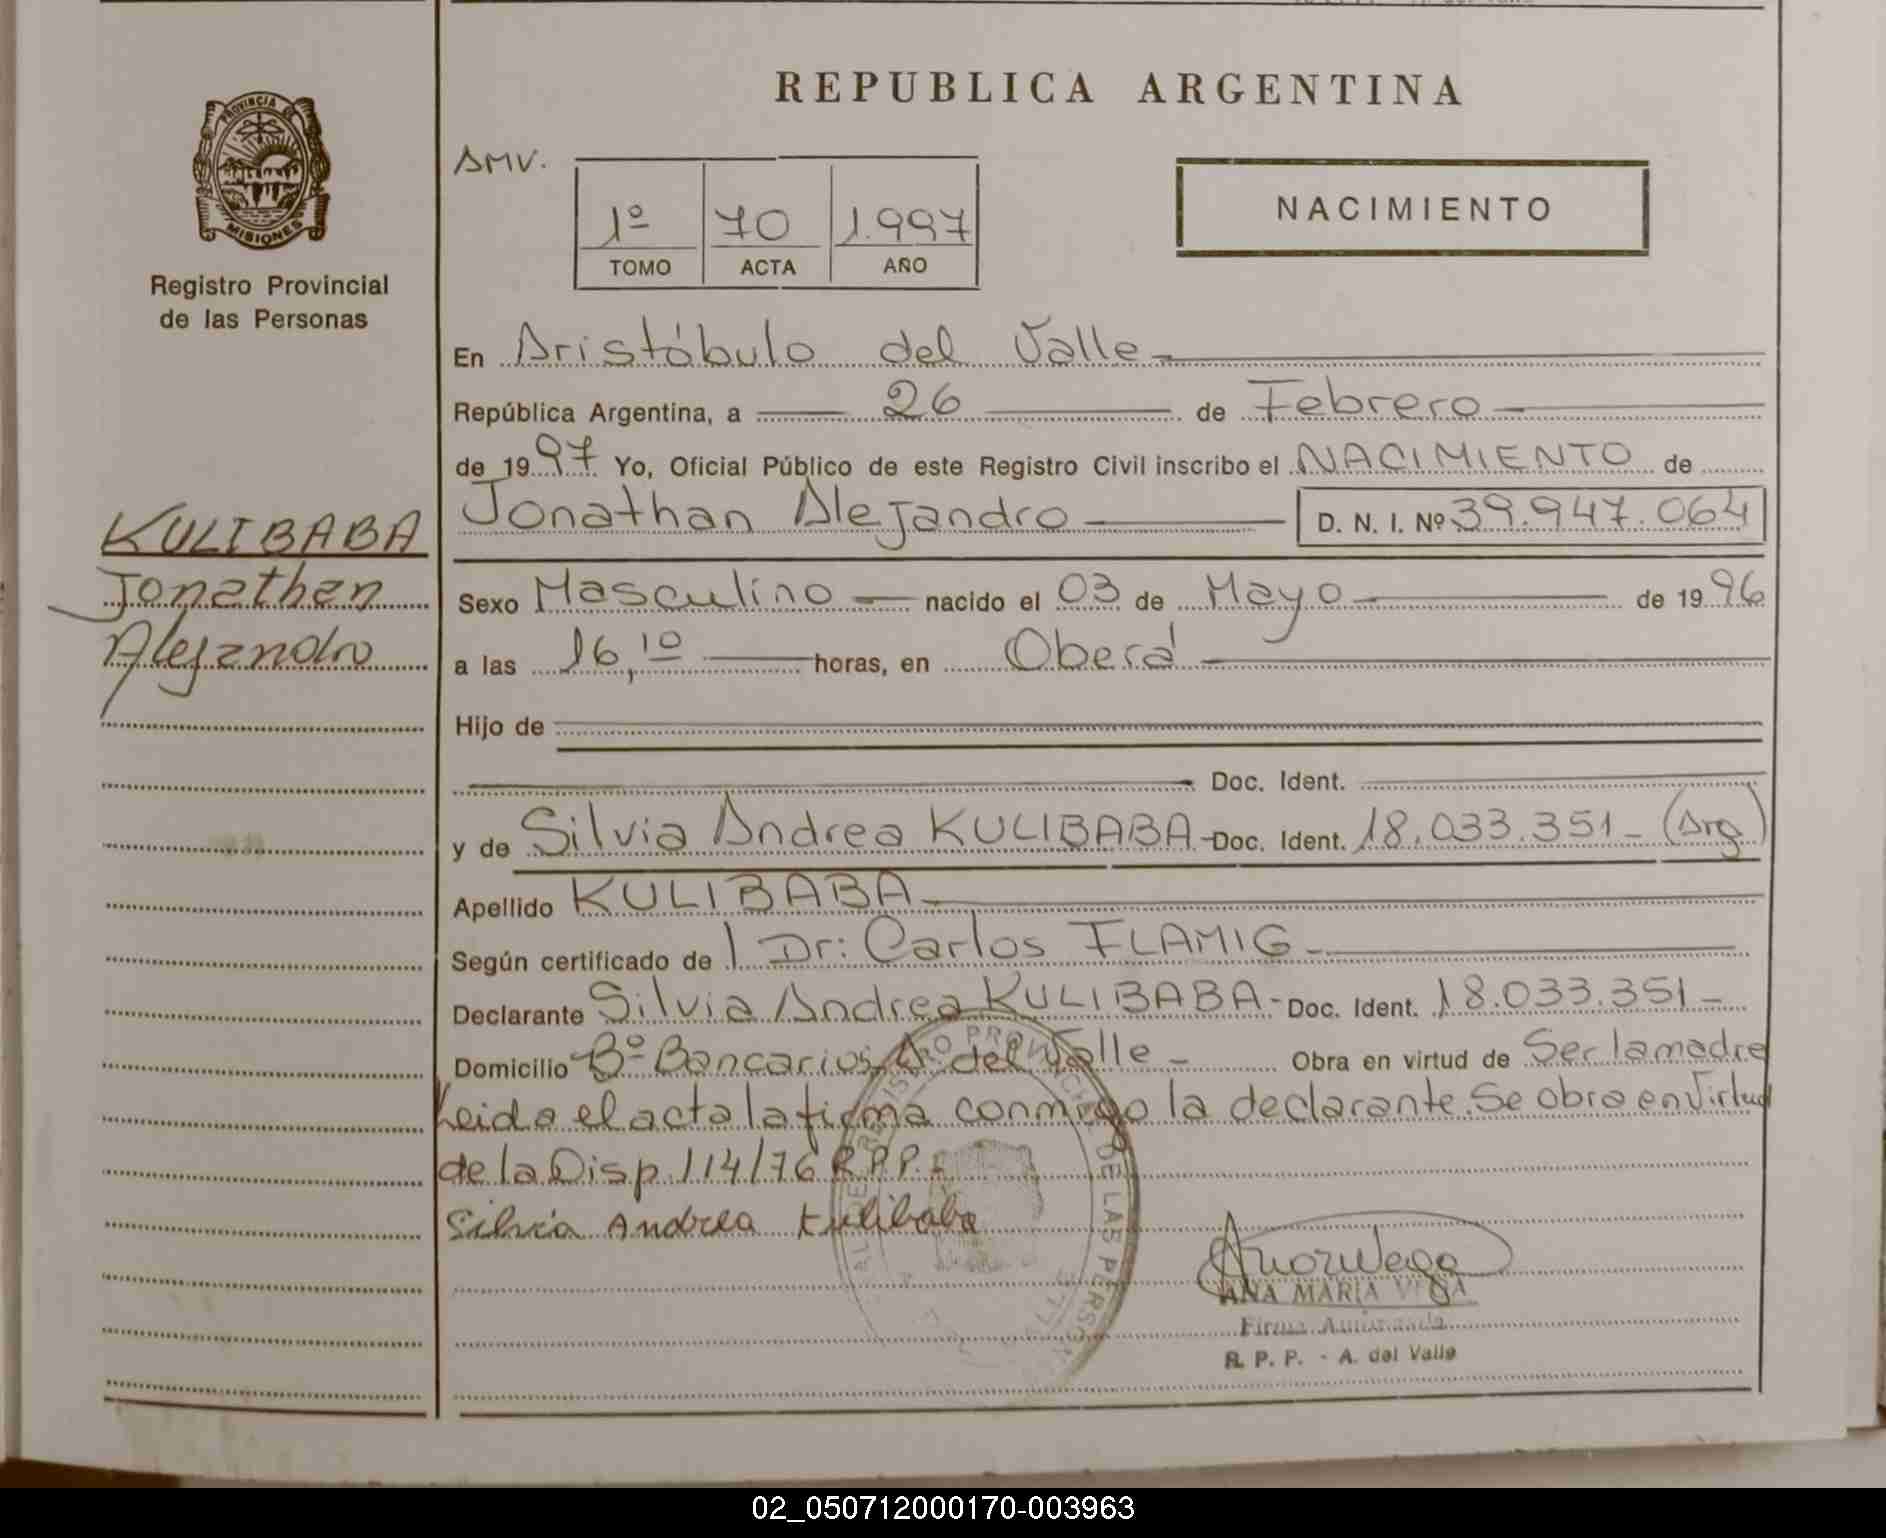 REPUBLICA ARGENTINA
PROVINCIA DE
MISIONES
Registro Provincial
de las Personas
AMV.
1º 70 1.997
TOMO ACTA AÑO
NACIMIENTO
En Aristóbulo del Valle
República Argentina, a 26 de Febrero
de 1997 Yo, Oficial Público de este Registro Civil inscribo el NACIMIENTO de
Jonathan Alejandro D. N. I. Nº 39.947.064
KULIBABA
Jonathan
Alejandro
Sexo Masculino nacido el 03 de Mayo de 1996
a las 16,10 horas, en Oberá
Hijo de
Doc. Ident.
y de Silvia Andrea KULIBABA - Doc. Ident. 18.033.351 - (Arg)
Apellido KULIBABA
Según certificado de l Dr: Carlos FLAMIG
Declarante Silvia Andrea KULIBABA - Doc. Ident. 18.033.351 -
Domicilio Bº Bancarios A. del Valle - Obra en virtud de Ser la madre
Leida el acta la firma conmigo la declarante. Se obra en Virtud
de la Disp. 114/76 R.P.P. -
Silvia Andrea Kulibaba
REGISTRO PROVINCIAL DE LAS PERSONAS
ANA MARIA VEGA
Firma Autorizada
R. P. P. - A. del Valle
02_050712000170-003963